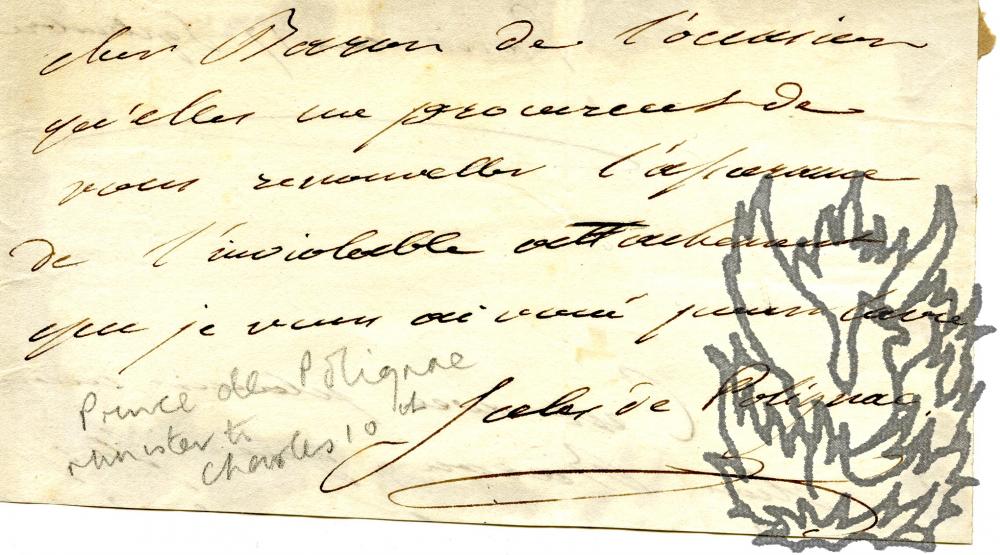 cher Baron de l'occasion
qu'elles me procurent de
vous renouveller l'assurance
de l'inviolable attachement
que je vous ai voué pour la vie
Jules de Polignac
Prince de Polignac
Minister to
Charles 10